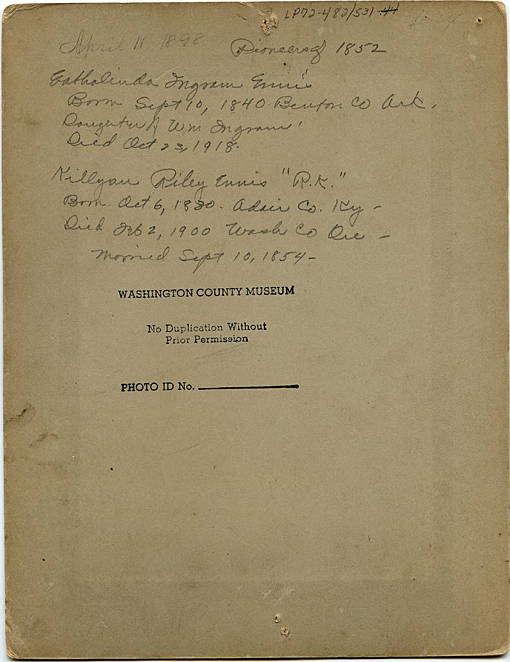 LP72-482/531
April 11 1898
Pioneers of 1852
Catholinda Ingram Ennis
Born Sept 10, 1840 Benton Co Ark.
Daughter of Wm Ingram
Died Oct 23, 1918.
Killyan Riley Ennis "R.K."
Born Oct 6, 1830. Adair Co. Ky -
Died Feb 2, 1900 Wash Co Ore -
Married Sept 10, 1854 -
WASHINGTON COUNTY MUSEUM
No Duplication Without
Prior Permission
PHOTO ID No.